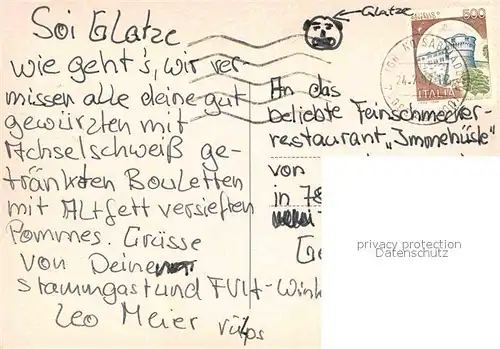 Soi Glatze
wie geht's, wir ver-
missen alle deine gut
gewürzten mit
Achselschweiß ge-
tränkten Bouletten
mit Altfett versieften
Pommes. Grüsse
von Deinem
Stammgast und FVIt-Wink
Leo Meier rülps
Glatze
500
ITALIA
An das
beliebte Feinschmecker-
restaurant „Immehüsle“
von
in 78
privacy protection
Datenschutz